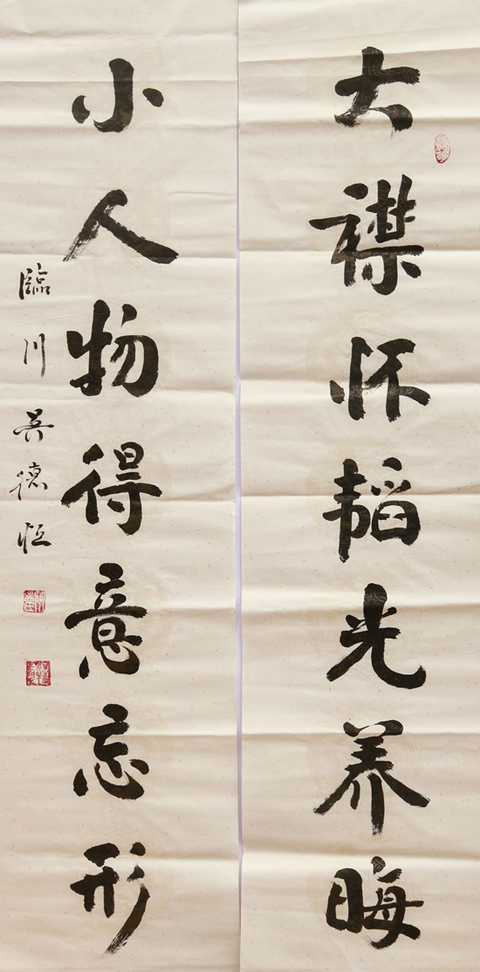 大襟怀韬光养晦
小人物得意忘形
臨川吴德恒